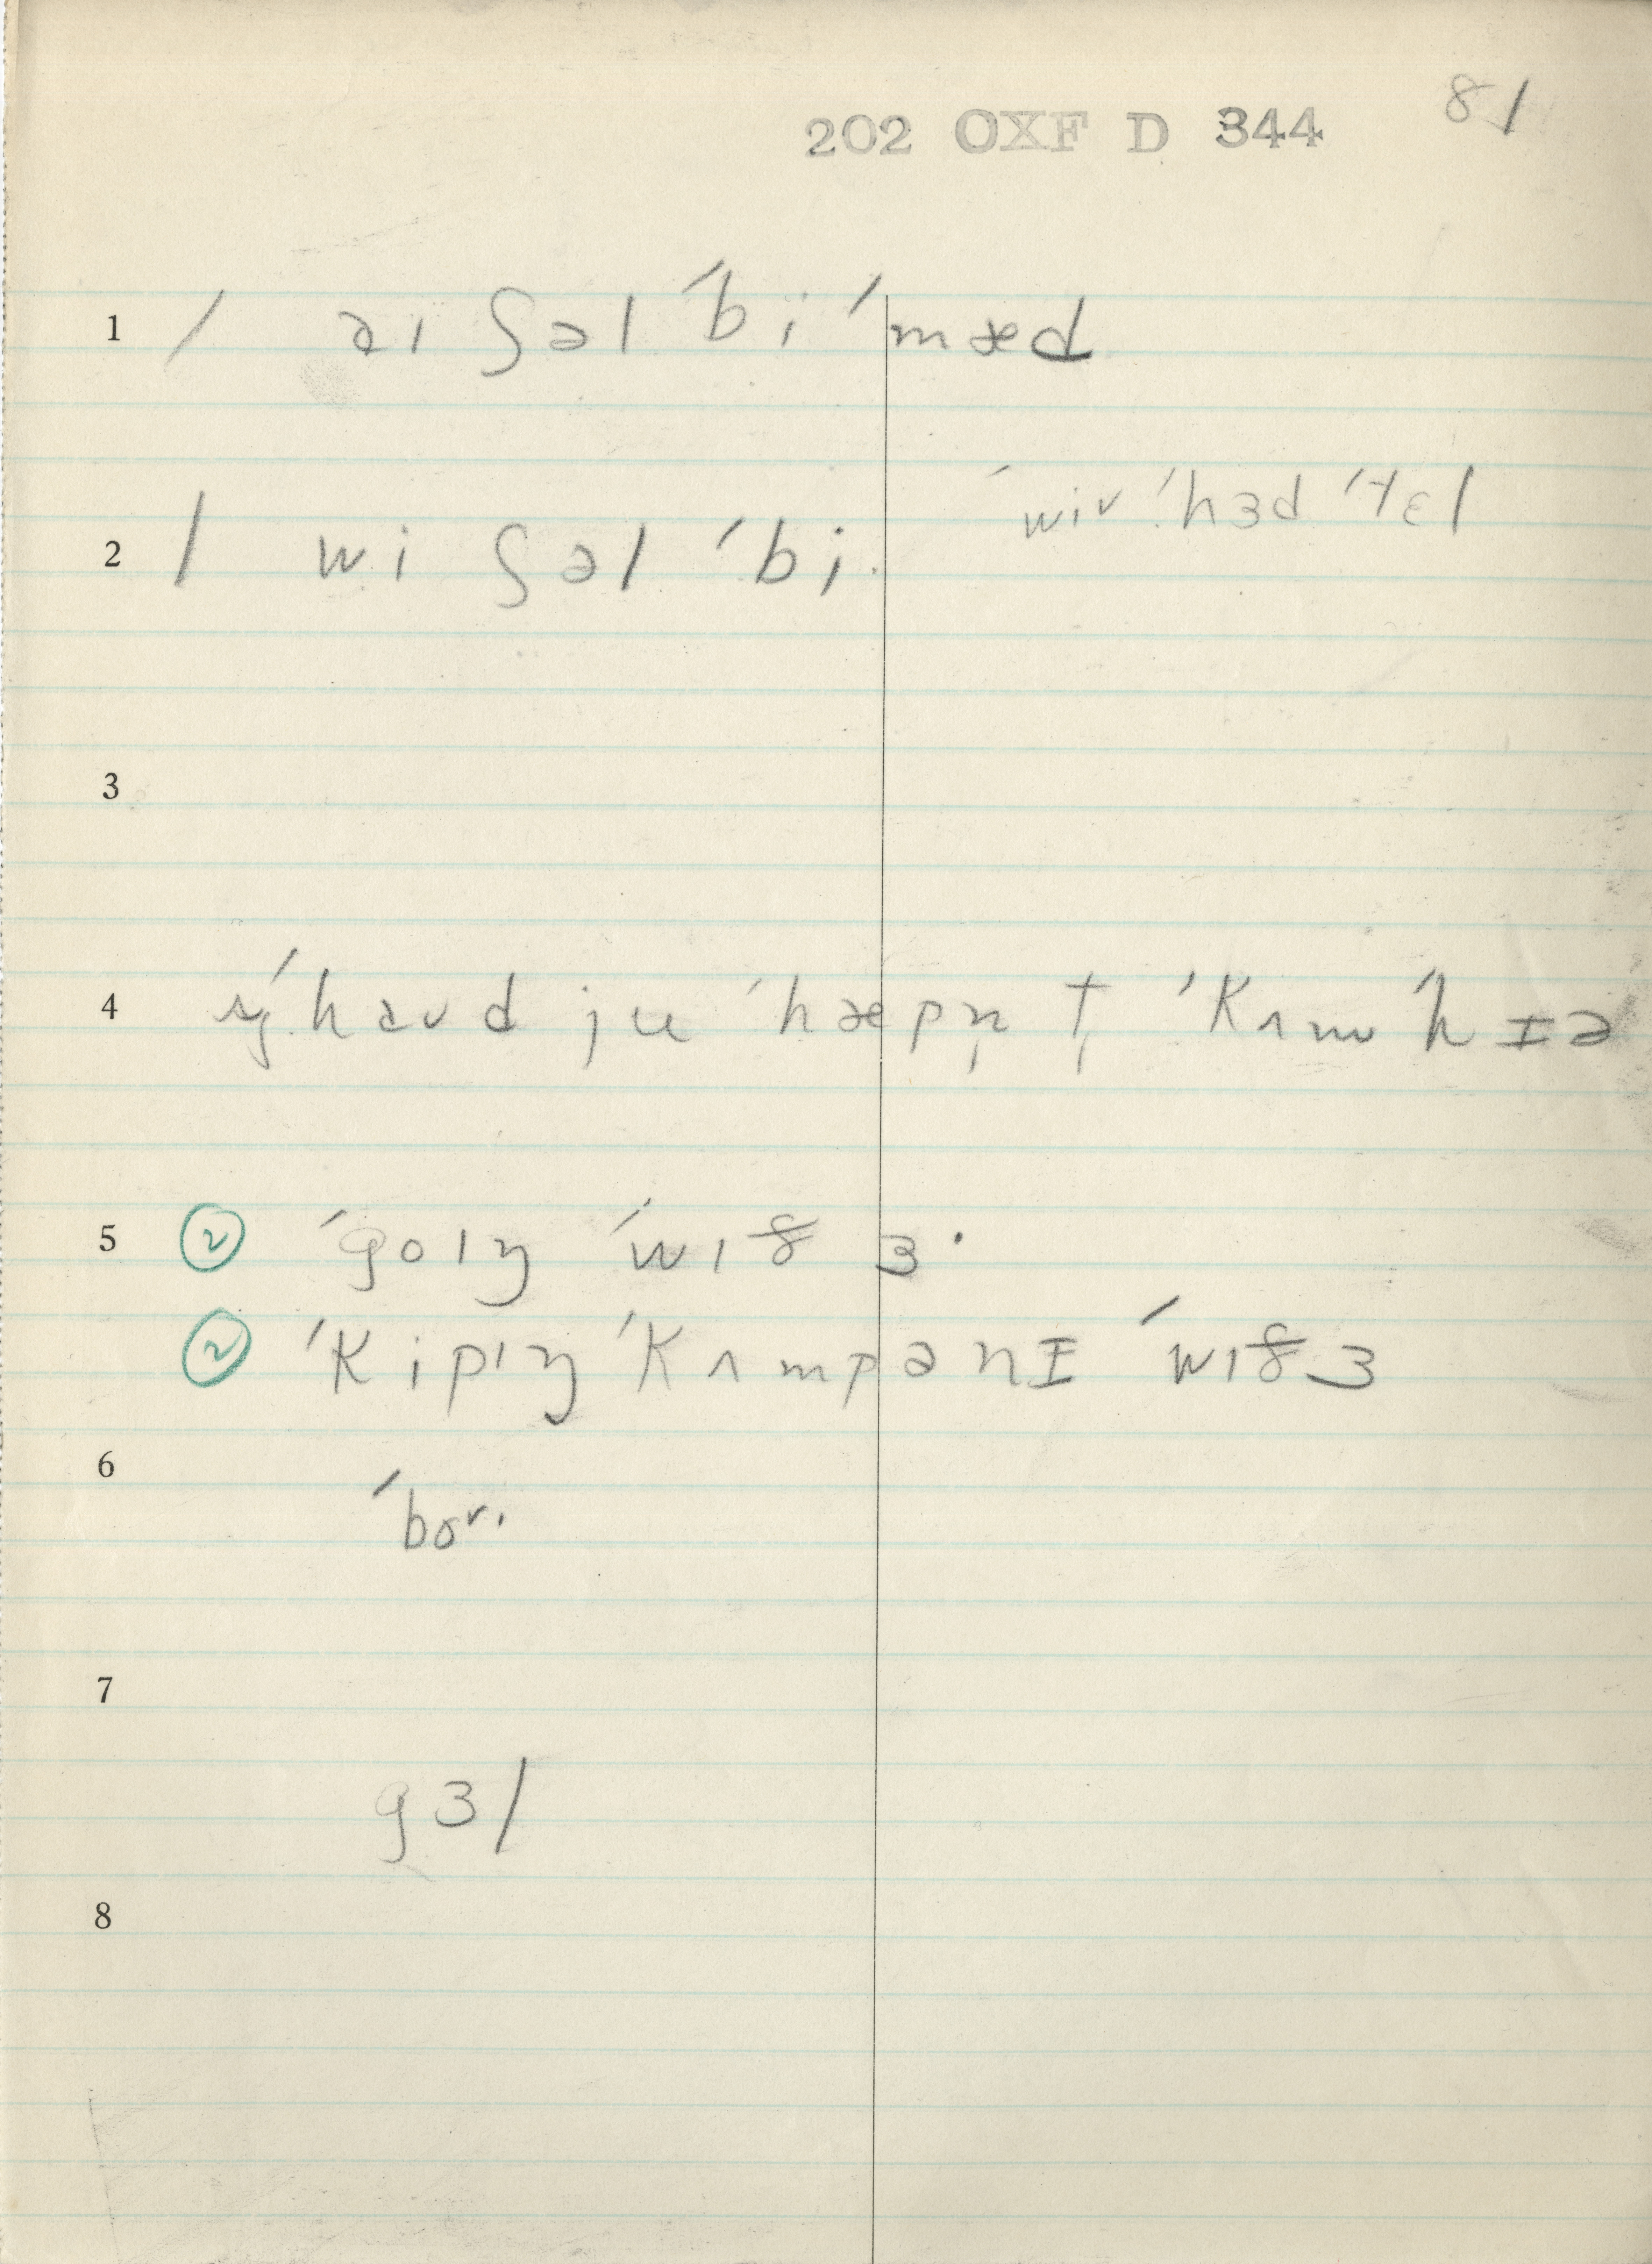 202 OXF D 344 81
1 / aɪ ʃəl ˈbi ˈmæd
ˈwiv ˈhɜd ˈtɛl
2 / wi ʃəl ˈbi
3
4 ˈhaʊd ju ˈhæpn̩ t̩ ˈkʌm ˈhɪə
5 ② ˈgoɪŋ ˈwɪð ɜ
② ˈkipɪŋ ˈkʌmpənɪ ˈwɪð ɜ
6
ˈboʊ
7
gɜl
8